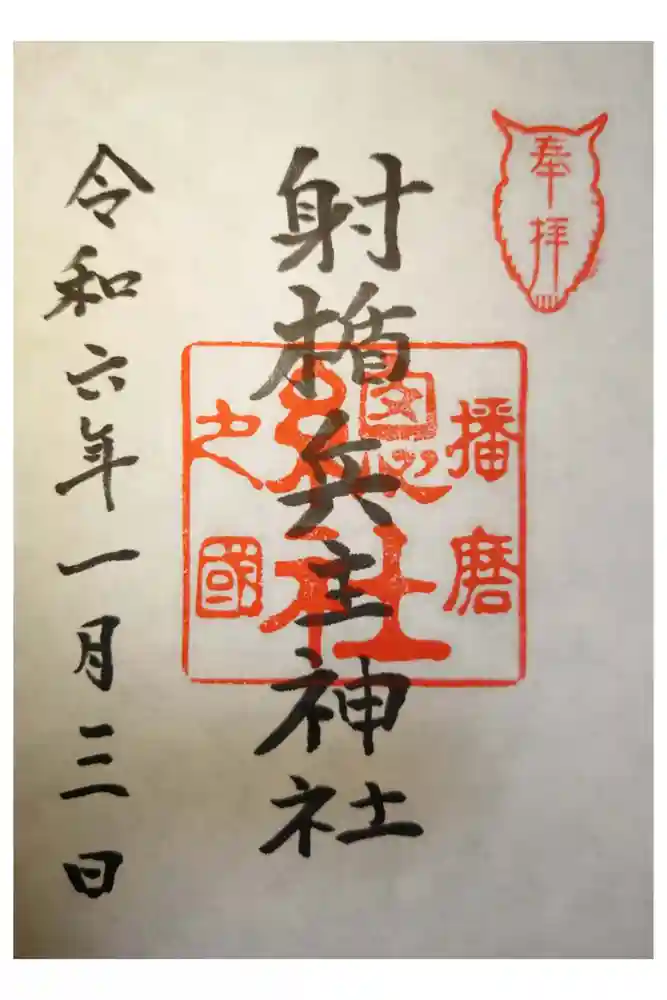 奉拝
射楯兵主神社
播磨
總社
之國
令和六年一月三日